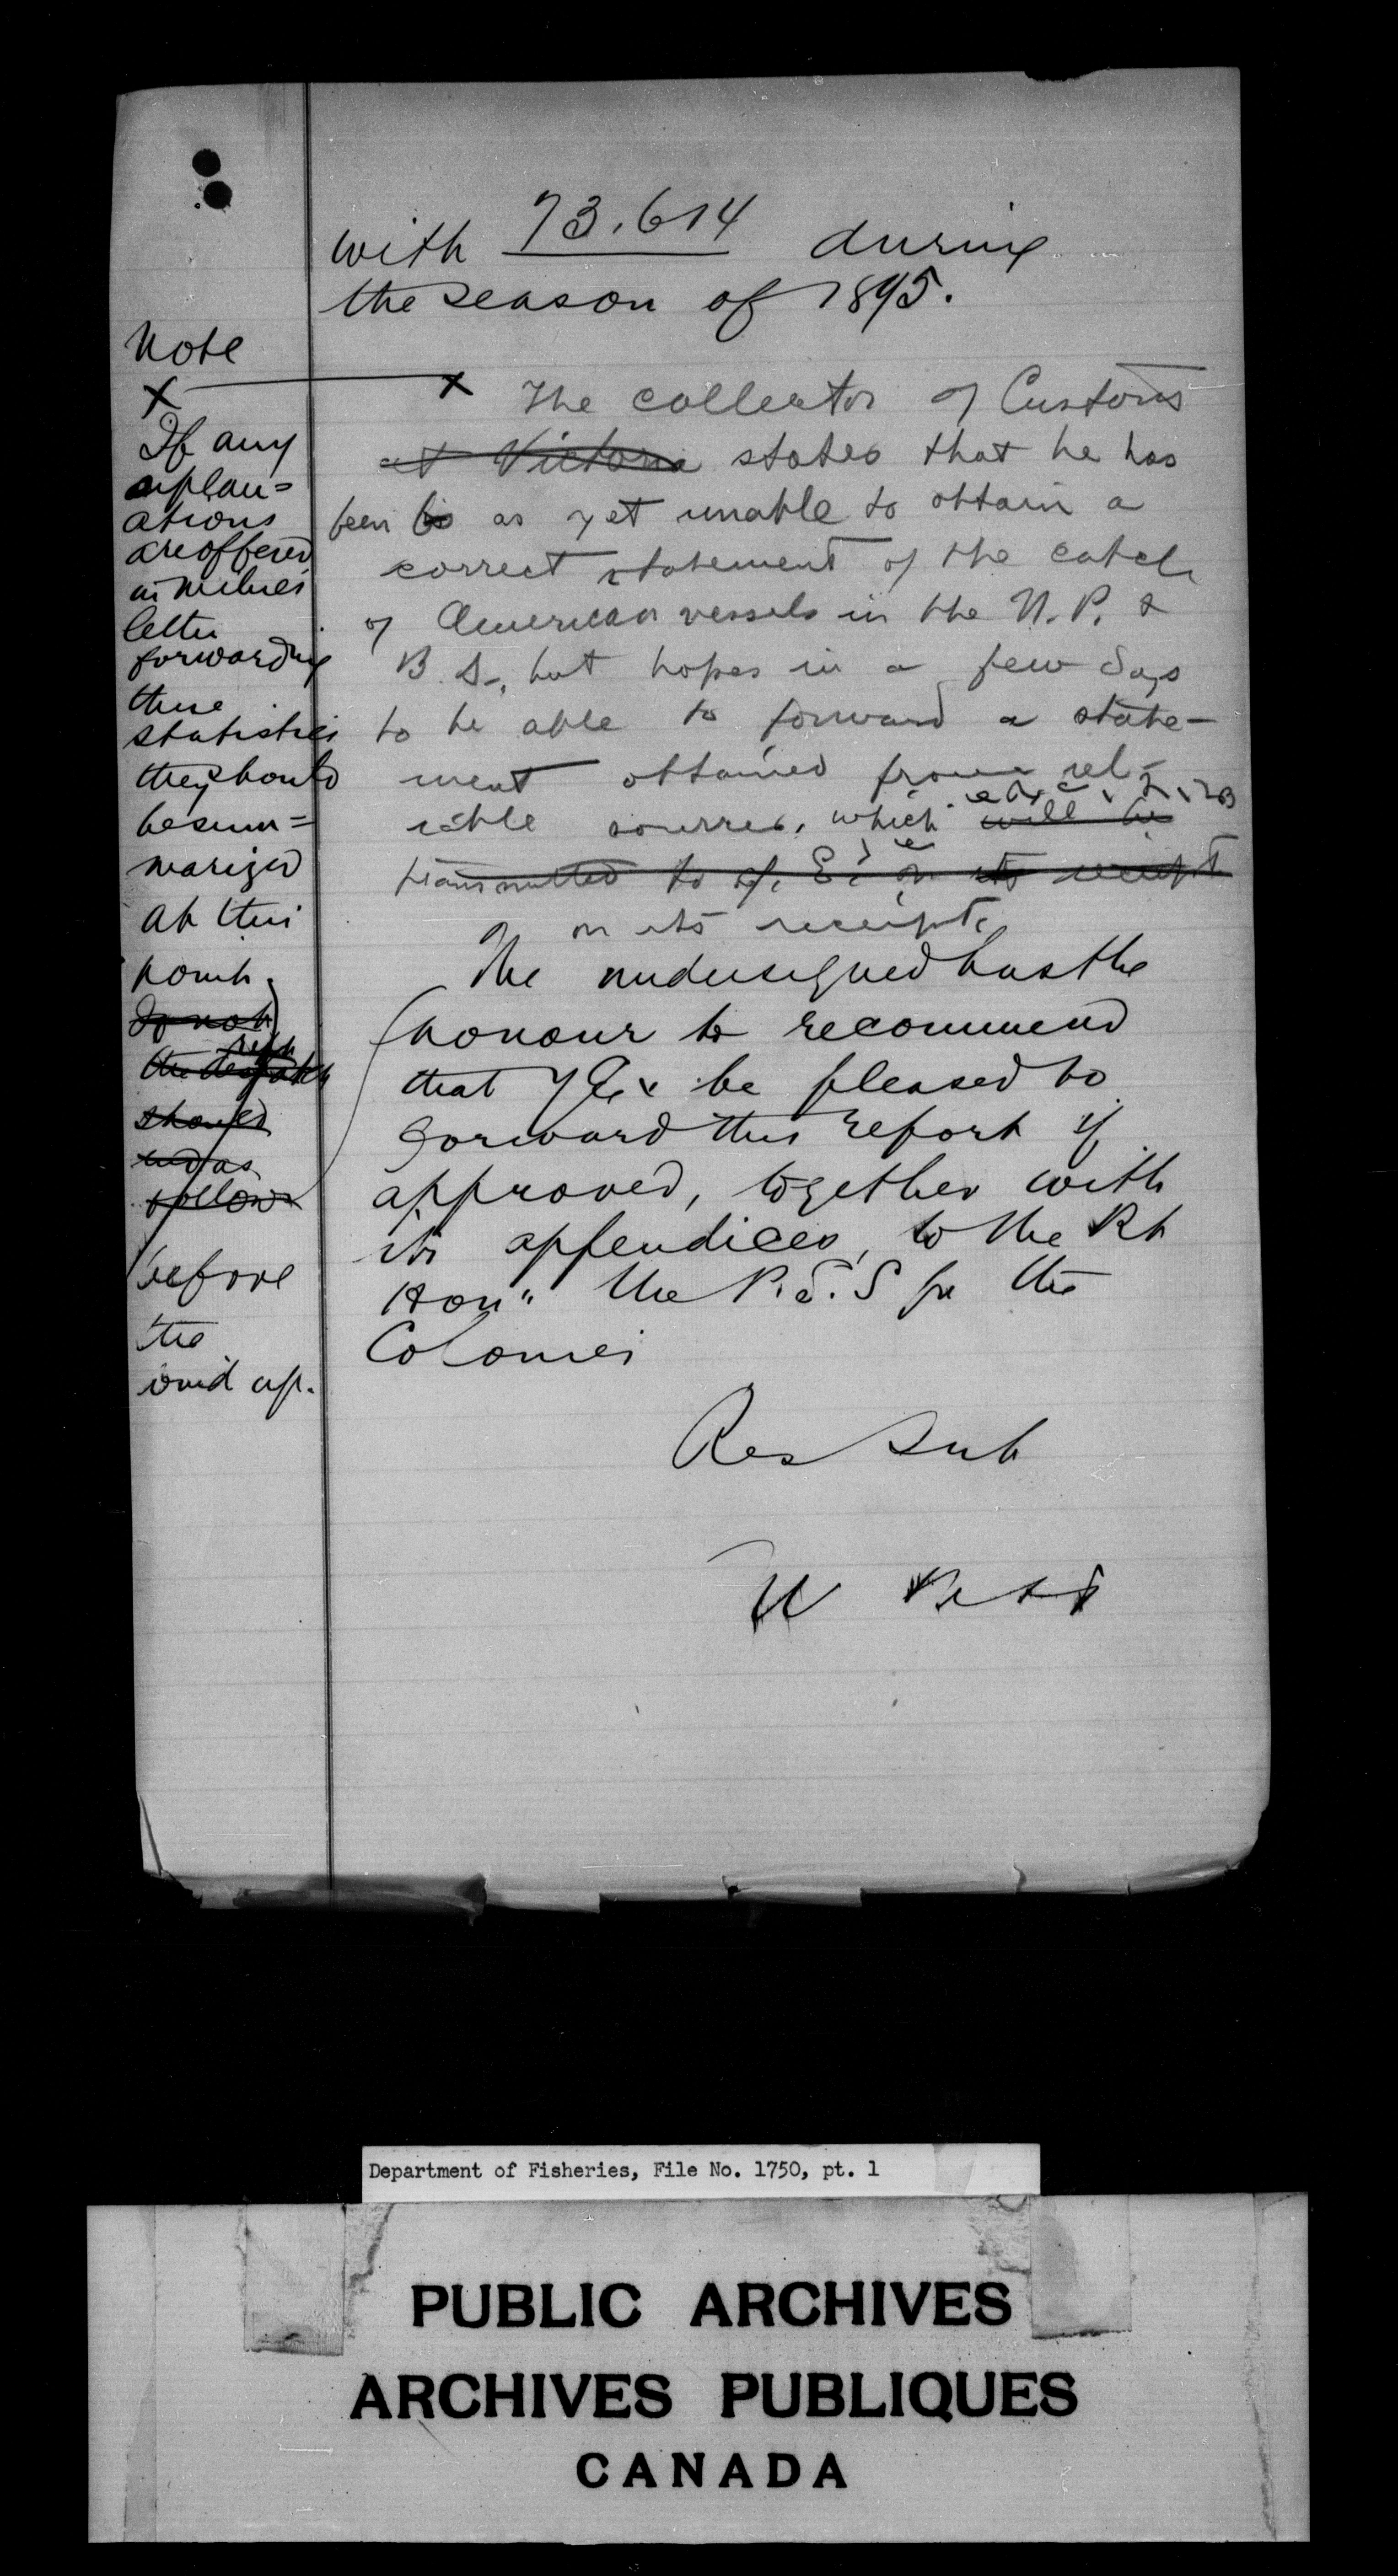 with 73.614 during
the season of 1895.
Note
X
If any
explan=
ations
are offered
in Milnes
letter
forwarding
these
statistics
they should
be sum=
marized
at this
point.
do not
the despatch
should
end as
follows
before
the
wind up.
x The collector of Customs
at Victoria states that he has
been as yet unable to obtain a
correct statement of the catch
of American vessels in the N. P. &
B. S., but hopes in a few days
to be able to forward a state-
ment obtained from rel-
iable sources, which will be
transmitted to Y. E. on its receipt
on its receipt.
The undersigned has the
honour to recommend
that Y Ex be pleased to
forward this report if
approved, together with
its appendices, to the Rt
Hon" the P. S. S for the
Colonies
Res Sub
Department of Fisheries, File No. 1750, pt. 1
PUBLIC ARCHIVES
ARCHIVES PUBLIQUES
CANADA